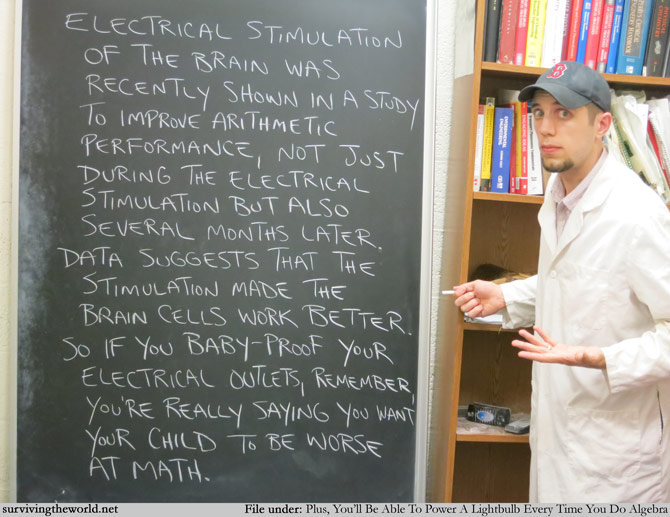 ELECTRICAL STIMULATION
OF THE BRAIN WAS
RECENTLY SHOWN IN A STUDY
TO IMPROVE ARITHMETIC
PERFORMANCE, NOT JUST
DURING THE ELECTRICAL
STIMULATION BUT ALSO
SEVERAL MONTHS LATER.
DATA SUGGESTS THAT THE
STIMULATION MADE THE
BRAIN CELLS WORK BETTER.
SO IF YOU BABY-PROOF YOUR
ELECTRICAL OUTLETS, REMEMBER,
YOU'RE REALLY SAYING YOU WANT
YOUR CHILD TO BE WORSE
AT MATH.
B
survivingtheworld.net
File under: Plus, You'll Be Able To Power A Lightbulb Every Time You Do Algebra